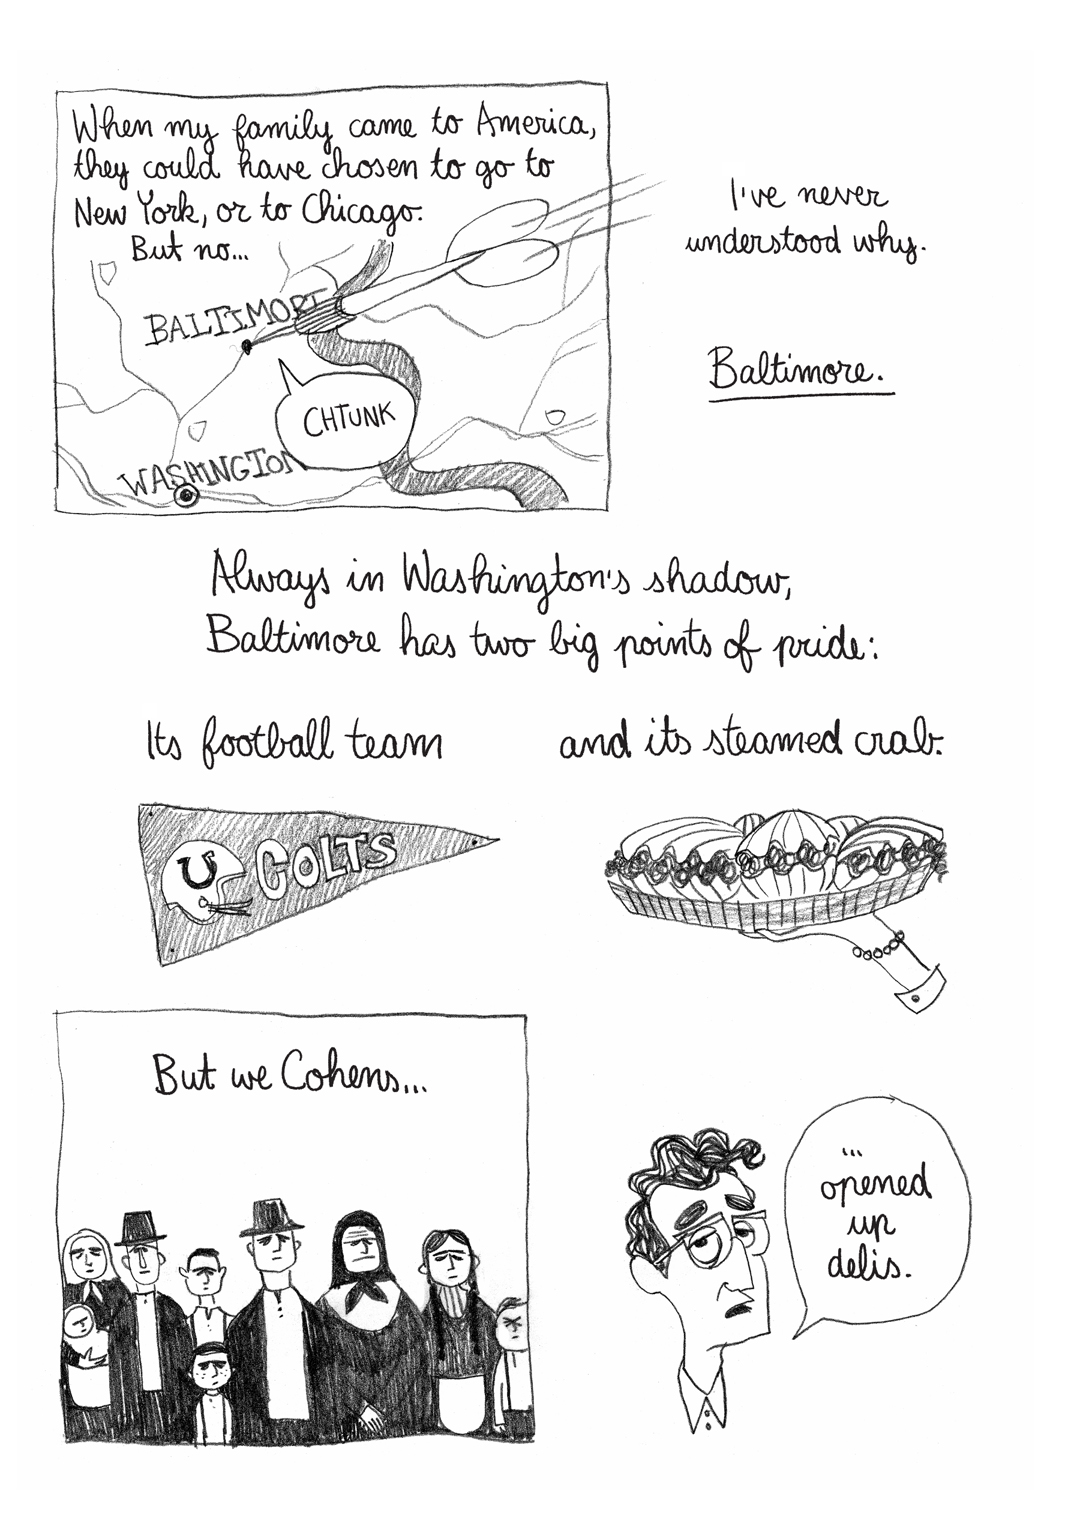 When my family came to America,
they could have chosen to go to
New York, or to Chicago.
But no...
BALTIMORE
CHTUNK
WASHINGTON
I've never
understood why.
Baltimore.
Always in Washington's shadow,
Baltimore has two big points of pride:
Its football team
and its steamed crab.
COLTS
But we Cohens...
...
opened
up
delis.